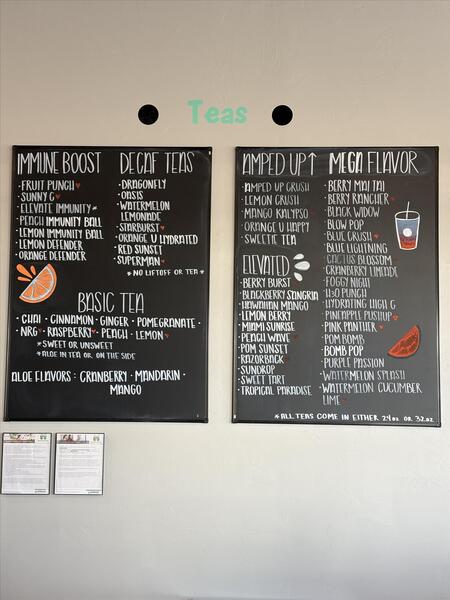 Teas
IMMUNE BOOST
• FRUIT PUNCH
• SUNNY G
• ELEVATE IMMUNITY *
• PEACH IMMUNITY BALL
• LEMON IMMUNITY BALL
• LEMON DEFENDER
• ORANGE DEFENDER
DECAF TEAS
• DRAGONFLY
• OASIS
• WATERMELON
LEMONADE
• STARBURST
• ORANGE U HYDRATED
• RED SUNSET
• SUPERMAN
* NO LIFTOFF OR TEA *
BASIC TEA
• CHAI • CINNAMON • GINGER • POMEGRANATE •
NRG • RASPBERRY • PEACH • LEMON •
* SWEET OR UNSWEET
* ALOE IN TEA OR ON THE SIDE
ALOE FLAVORS: CRANBERRY • MANDARIN •
MANGO
AMPED UP↑
• AMPED UP CRUSH
• LEMON CRUSH
• MANGO KALYPSO
• ORANGE U HAPPY
• SWEETIE TEA
ELEVATED
• BERRY BURST
• BLACKBERRY SANGRIA
• HAWAIIAN MANGO
• LEMON BERRY
• MIAMI SUNRISE
• PEACH WAVE
• POM SUNSET
• RAZORBACK
• SUNDROP
• SWEET TART
• TROPICAL PARADISE
MEGA FLAVOR
• BERRY MAI TAI
• BERRY RANCHER
• BLACK WIDOW
• BLOW POP
• BLUE CRUSH
• BLUE LIGHTNING
• CACTUS BLOSSOM
• CRANBERRY LIMEADE
• FOGGY NIGHT
• H3O PUNCH
• HYDRATING HIGH G
• PINEAPPLE PUSHUP
• PINK PANTHER
• POM BOMB
• BOMB POP
• PURPLE PASSION
• WATERMELON SPLASH
• WATERMELON CUCUMBER
LIME
* ALL TEAS COME IN EITHER 24oz OR 32oz